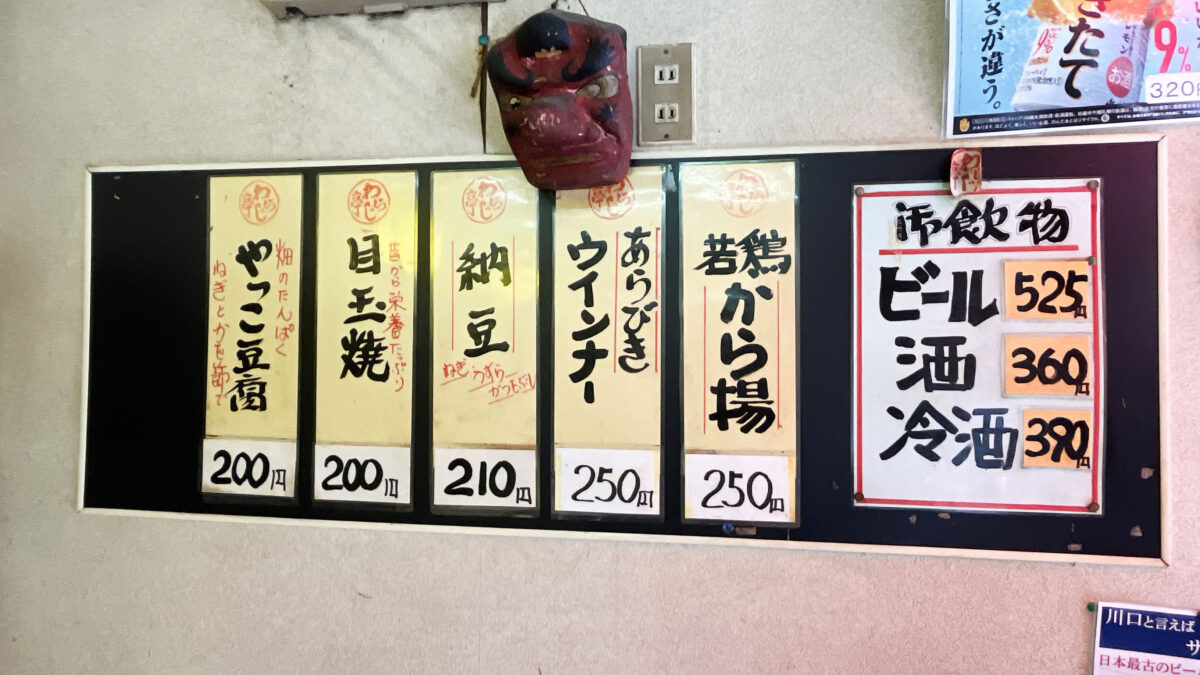 わらじ亭
やっこ豆腐
畑のたんぱく
ねぎとかつお節で
200円
わらじ亭
目玉焼
昔から栄養たっぷり
200円
わらじ亭
納豆
ねぎ
うずら
かつをぶし
210円
あらびき
ウインナー
250円
わらじ亭
若鶏から揚
250円
わらじ
御飲物
ビール 525円
酒 360円
冷酒 390円
きたて
さが違う。
9%
お酒
9%
320円
川口と言えば
サ
日本最古のビー